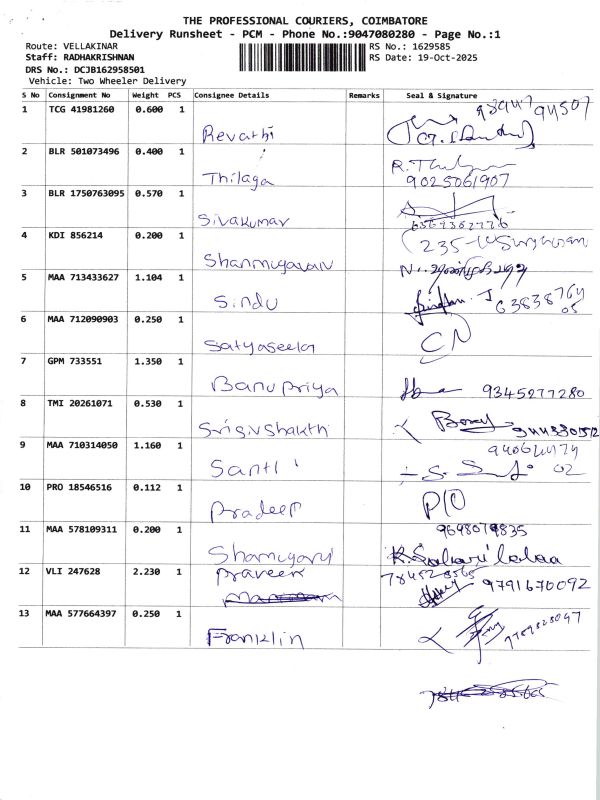 THE PROFESSIONAL COURIERS, COIMBATORE
Delivery Runsheet - PCM - Phone No.:9047080280 - Page No.:1
Route: VELLAKINAR RS No.: 1629585
Staff: RADHAKRISHNAN RS Date: 19-Oct-2025
DRS No.: DCJB162958501
Vehicle: Two Wheeler Delivery
S No Consignment No Weight PCS Consignee Details Remarks Seal & Signature
1 TCG 41981260 0.600 1
Revathi
2 BLR 501073496 0.400 1
Thilaga 9025061907
3 BLR 1750763095 0.570 1
Sivakumar
4 KDI 856214 0.200 1 235-
Shanmugavari
5 MAA 713433627 1.104 1
Sindu
6 MAA 712090903 0.250 1 CN
Satyaseela
7 GPM 733551 1.350 1
Banupriya 9345277280
8 TMI 20261071 0.530 1
9 MAA 710314050 1.160 1
Santi
10 PRO 18546516 0.112 1 P/O
Pradeep
11 MAA 578109311 0.200 1
12 VLI 247628 2.230 1
Praveen 9791670092
13 MAA 577664397 0.250 1
Franklin